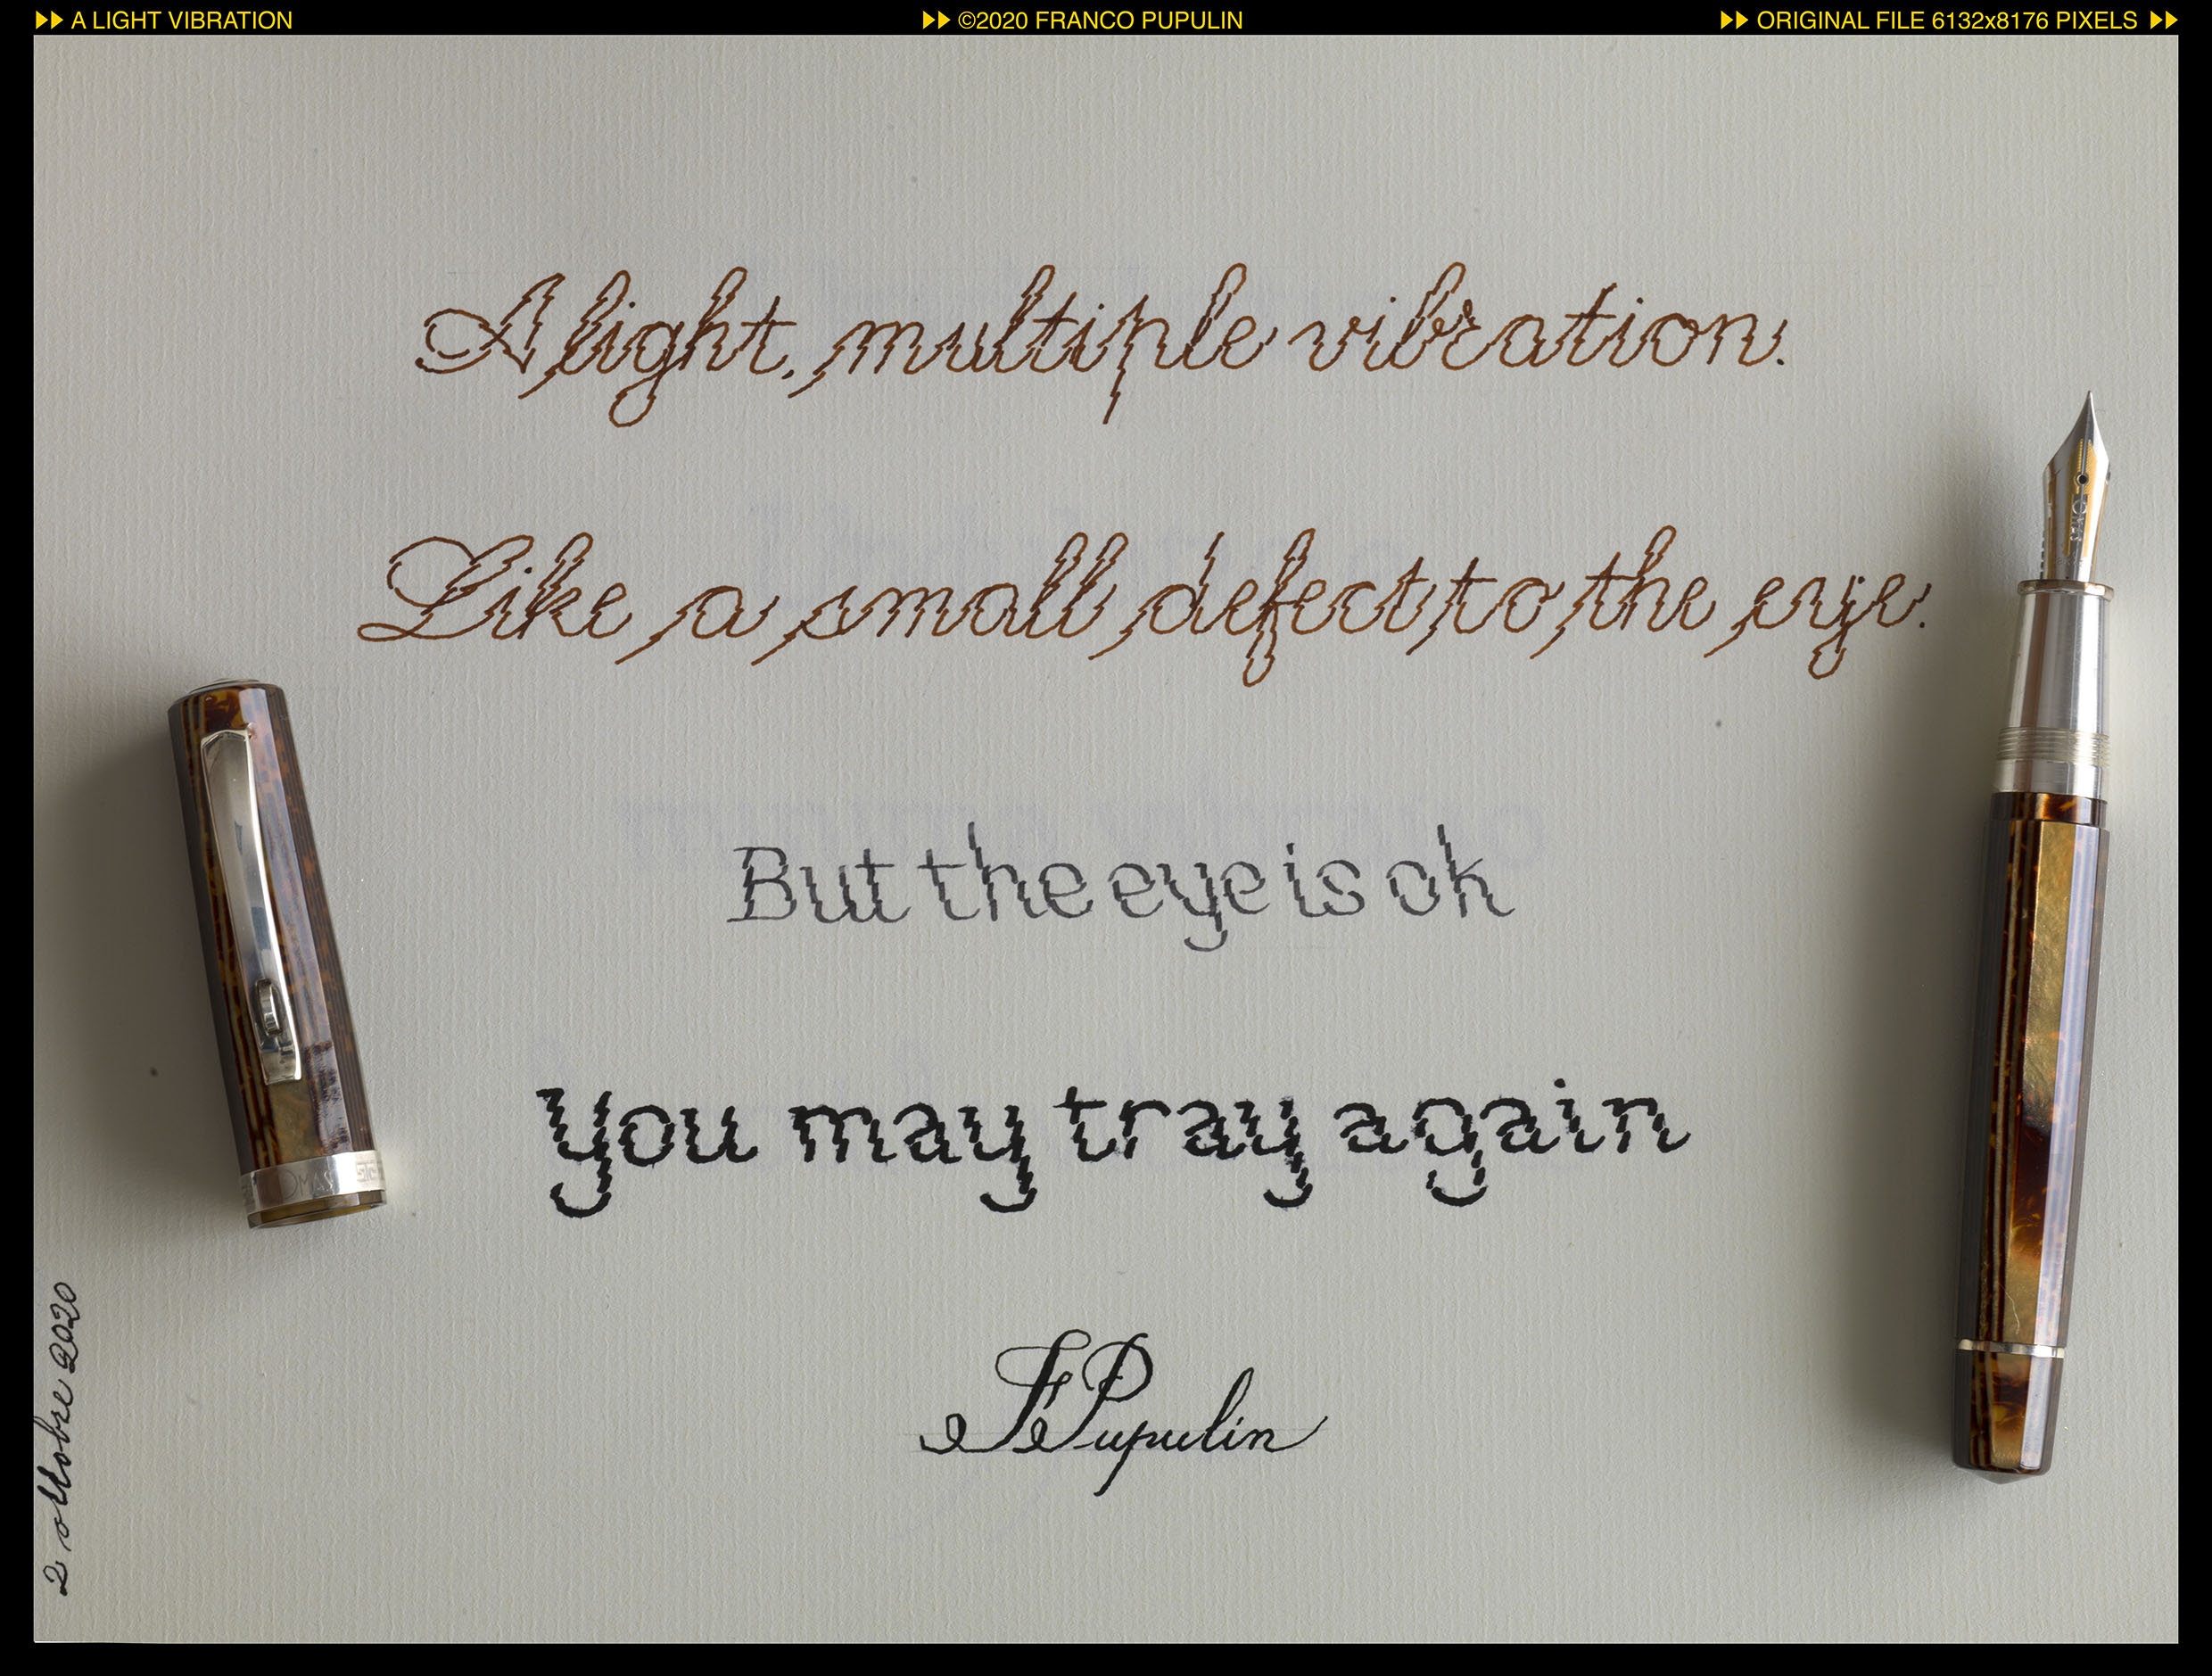 A LIGHT VIBRATION
©2020 FRANCO PUPULIN
ORIGINAL FILE 6132x8176 PIXELS
A light, multiple vibration.
Like a small defect to the eye.
But the eye is ok
you may tray again
F Pupulin
2 ottobre 2020
OMAS
OMAS